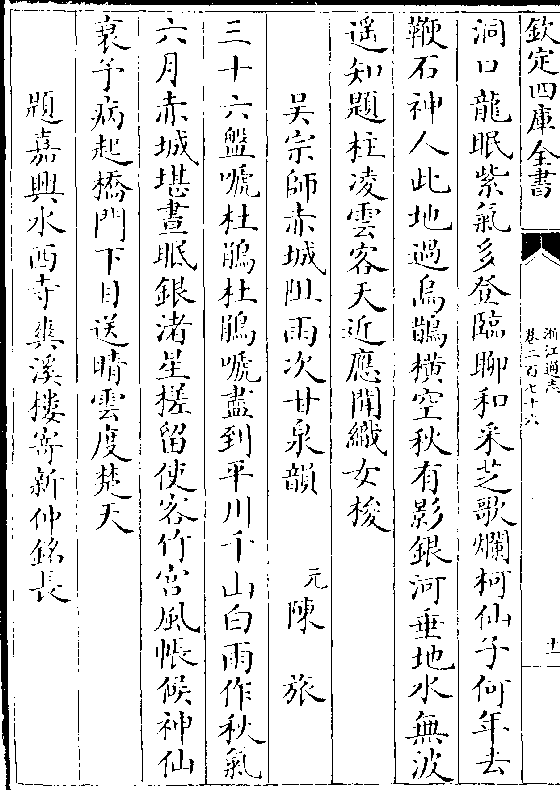 欽定四庫全書
浙江通志
卷二百七十六
十一
洞口龍眠紫氣多登臨聊和采芝歌爛柯仙子何年去
鞭石神人此地過烏鵲橫空秋有影銀河垂地水無波
遥知題柱凌雲客天近應聞織女梭
吴宗師赤城阻雨次甘泉韻
元
陳旅
三十六盤嗁杜鵑杜鵑嗁盡到平川千山白雨作秋氣
六月赤城堪晝眠銀渚星槎留使客竹宫風帳候神仙
衰予病起橋門下目送晴雲度楚天
題嘉興水西寺爽溪樓寄新仲銘長